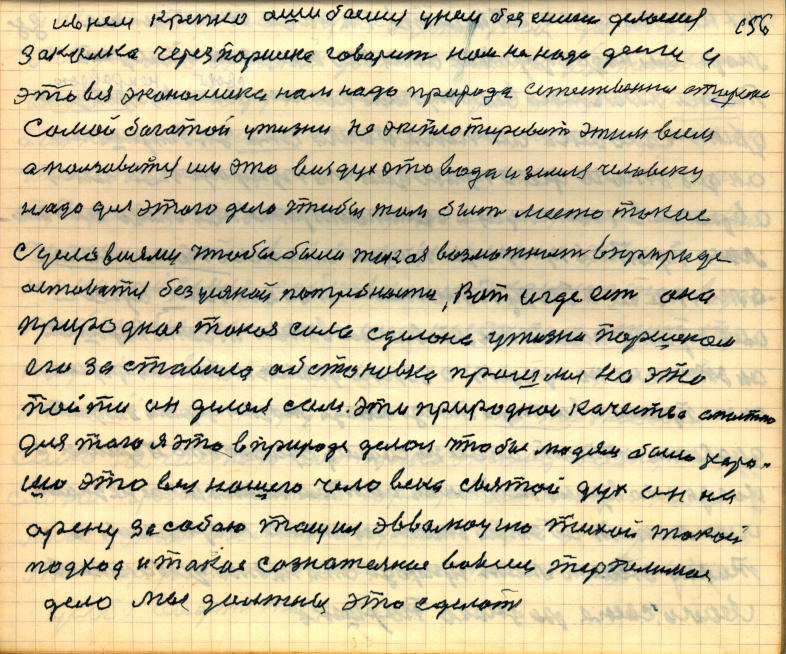 ив нем крепко ошибаемся у нем без ними делаемся 156
закалка через Паршека говарит нам не надо денги и
это вся экономика нам надо природа естественна старона
самой багатой жизни не эксплотироват этим всем
а ползоватся им это воздух это вода и земля человеку
надо для этого дело чтобы там было место такое
сделовшему чтобы была такая возможност в природе
оставатся без усякой потребности, Вот игде ест она
природная такая сила сделана у жизни Паршеком
его заставила обстановка прошими на это
пойти он делал сам. эти природное качества
для того я это в природе делал чтобы людям было харо-
шо это вся нашего человека святой дух он на
арену за собою тащил эволюцию тихой такой
подход и такае сознателное вовсем терпеливае
дело мы должны это сделат